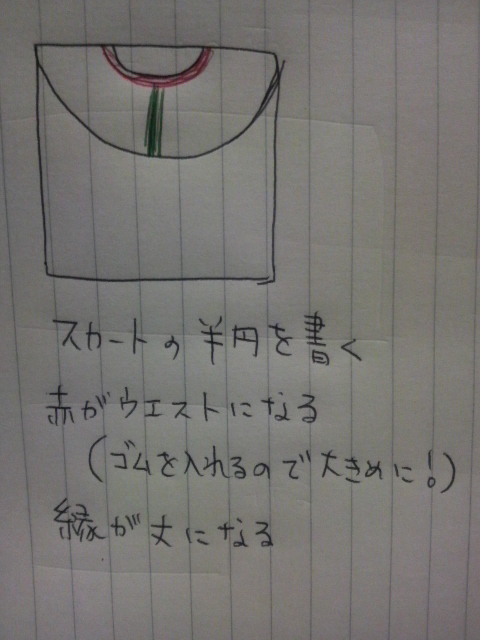 スカートの半円を書く
赤がウエストになる
(ゴムを入れるので大きめに!)
縁が丈になる